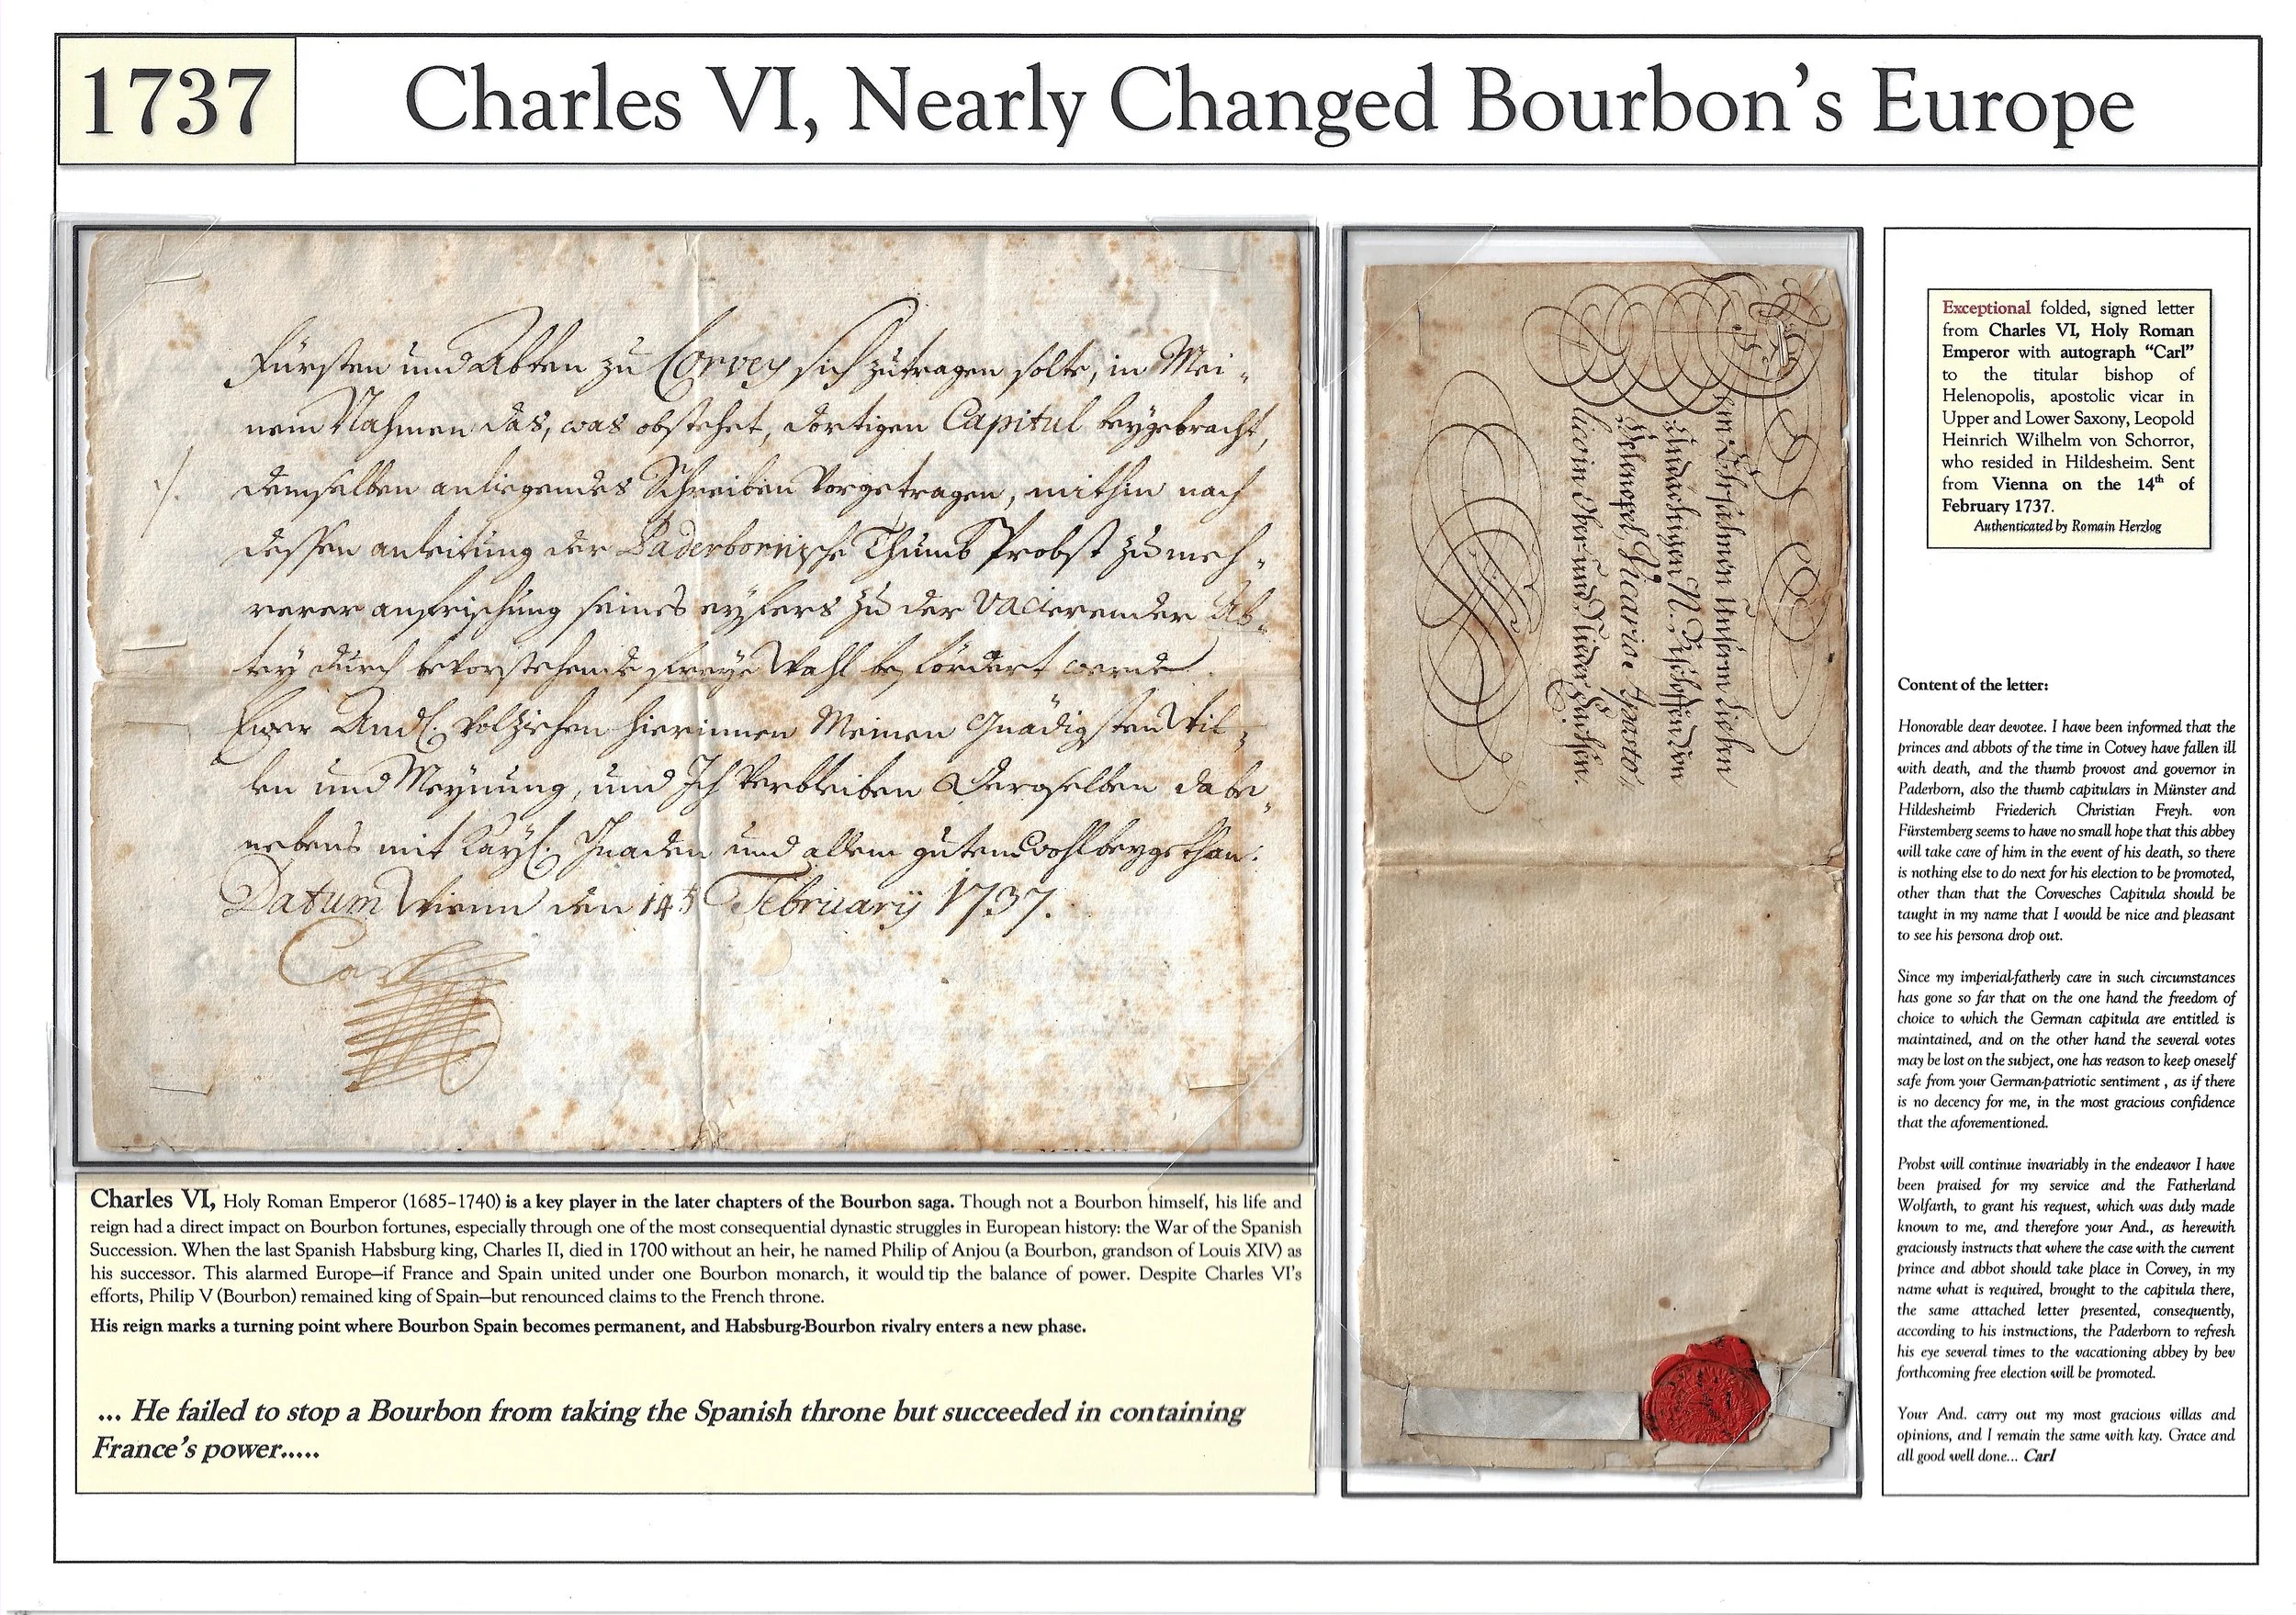 1737
Charles VI, Nearly Changed Bourbon's Europe
Fürsten und Abten zu Corvey sich zutragen solte, in Mei-
nem Nahmen das, was obstehet, dortigen Capitul beygebracht,
demselben anliegendes Schreiben vorgetragen, mithin nach
dessen anleitung der Paderbornische Thumb Probst zu meh-
rerer anfrischung seines eyfers zu der vacierender Ab-
tey durch bevorstehende freye Wahl befördert werde.
Ewer And. volziehen hierinnen Meinen Gnädigsten Wil-
len und Meynung, und Ich verbleiben Deroselben dabe-
nebens mit Kayl. Gnaden und allem guten wohlbeygethan.
Datum Wienn den 14t February 1737.
Carl
Charles VI, Holy Roman Emperor (1685–1740) is a key player in the later chapters of the Bourbon saga. Though not a Bourbon himself, his life and
reign had a direct impact on Bourbon fortunes, especially through one of the most consequential dynastic struggles in European history: the War of the Spanish
Succession. When the last Spanish Habsburg king, Charles II, died in 1700 without an heir, he named Philip of Anjou (a Bourbon, grandson of Louis XIV) as
his successor. This alarmed Europe—if France and Spain united under one Bourbon monarch, it would tip the balance of power. Despite Charles VI's
efforts, Philip V (Bourbon) remained king of Spain—but renounced claims to the French throne.
His reign marks a turning point where Bourbon Spain becomes permanent, and Habsburg-Bourbon rivalry enters a new phase.
... He failed to stop a Bourbon from taking the Spanish throne but succeeded in containing
France's power.....
Dem Ehrsahmen Unserm lieben
Andächtigen N. Bischoffen von
Helenopel, Vicario Aposto-
lico in Ober- und Nieder Sachsen.
Exceptional folded, signed letter
from Charles VI, Holy Roman
Emperor with autograph “Carl”
to the titular bishop of
Helenopolis, apostolic vicar in
Upper and Lower Saxony, Leopold
Heinrich Wilhelm von Schorror,
who resided in Hildesheim. Sent
from Vienna on the 14th of
February 1737.
Authenticated by Romain Herzlog
Content of the letter:
Honorable dear devotee. I have been informed that the
princes and abbots of the time in Cotvey have fallen ill
with death, and the thumb provost and governor in
Paderborn, also the thumb capitulars in Münster and
Hildesheimb Friederich Christian Freyh. von
Fürstemberg seems to have no small hope that this abbey
will take care of him in the event of his death, so there
is nothing else to do next for his election to be promoted,
other than that the Corvesches Capitula should be
taught in my name that I would be nice and pleasant
to see his persona drop out.
Since my imperial-fatherly care in such circumstances
has gone so far that on the one hand the freedom of
choice to which the German capitula are entitled is
maintained, and on the other hand the several votes
may be lost on the subject, one has reason to keep oneself
safe from your German-patriotic sentiment , as if there
is no decency for me, in the most gracious confidence
that the aforementioned.
Probst will continue invariably in the endeavor I have
been praised for my service and the Fatherland
Wolfarth, to grant his request, which was duly made
known to me, and therefore your And., as herewith
graciously instructs that where the case with the current
prince and abbot should take place in Corvey, in my
name what is required, brought to the capitula there,
the same attached letter presented, consequently,
according to his instructions, the Paderborn to refresh
his eye several times to the vacationing abbey by bev
forthcoming free election will be promoted.
Your And. carry out my most gracious villas and
opinions, and I remain the same with kay. Grace and
all good well done... Carl